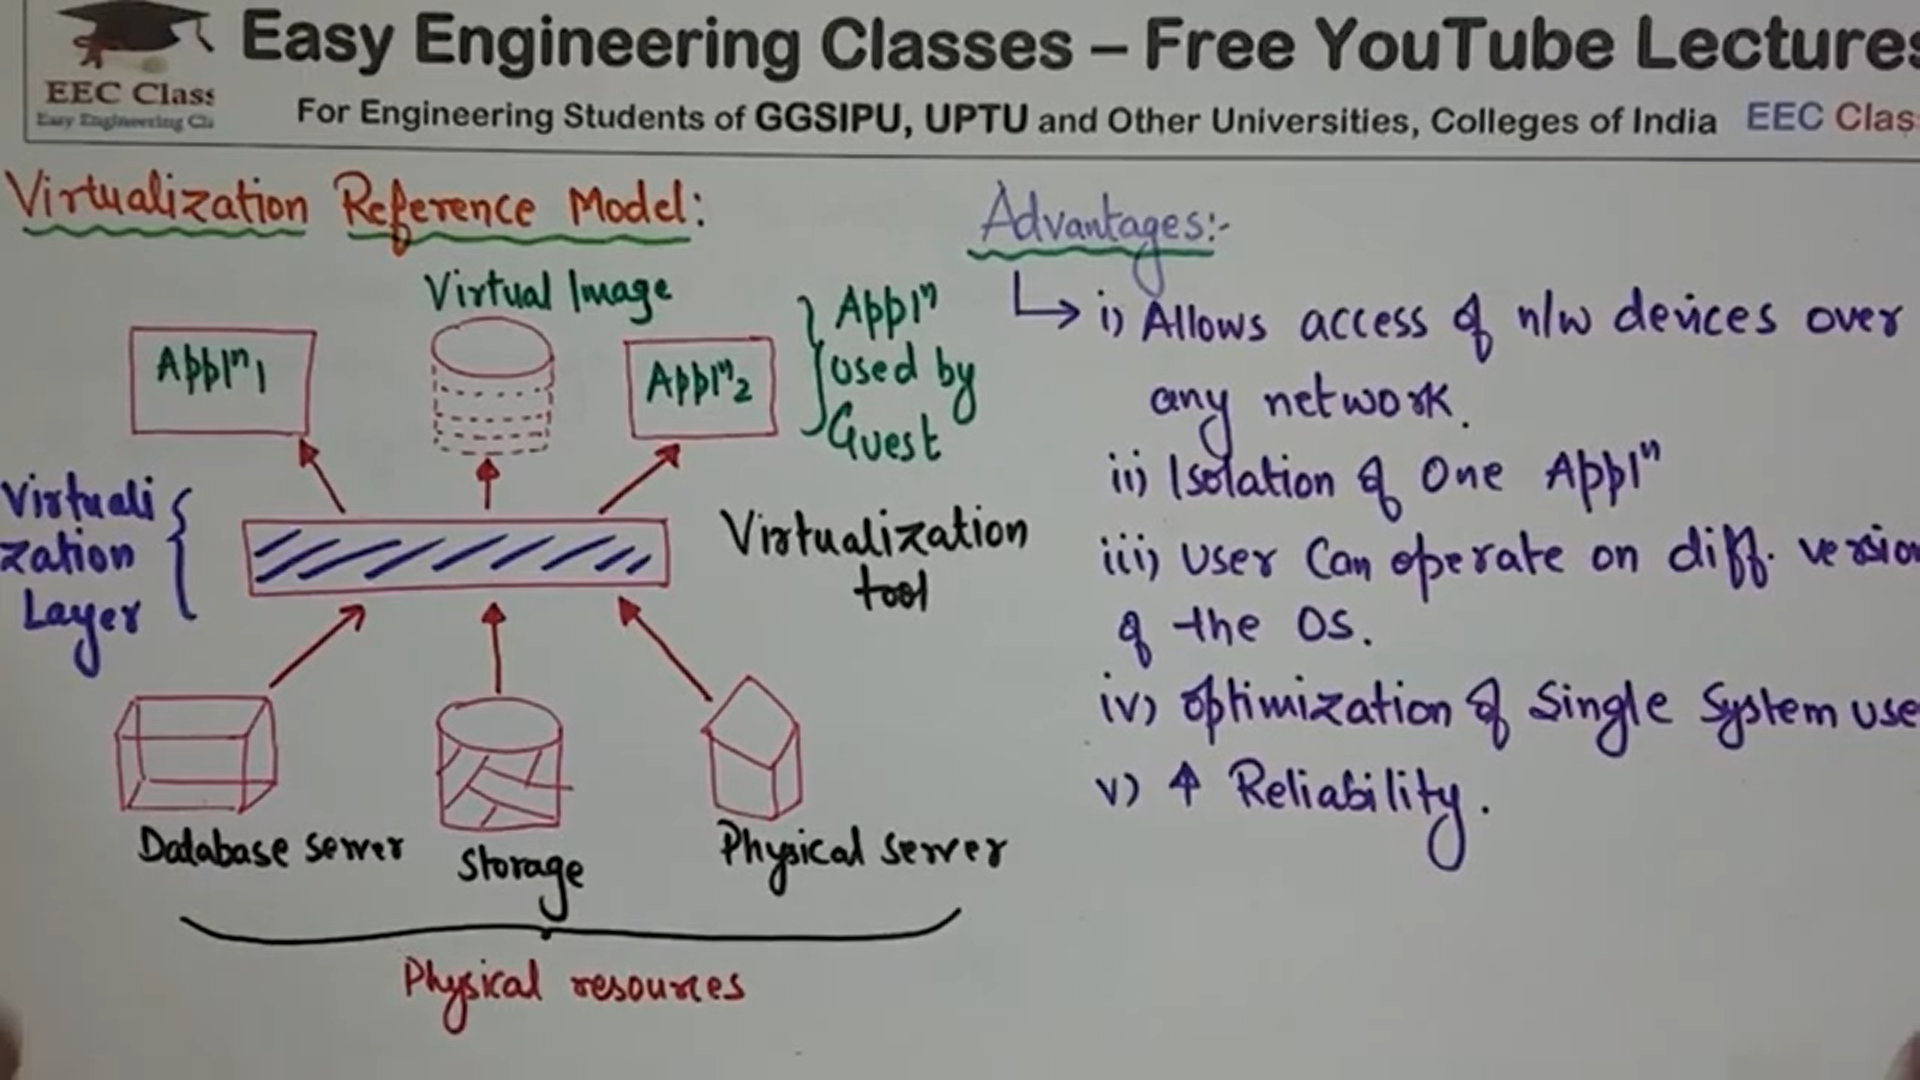 EEC Class
Easy Engineering Cla
Easy Engineering Classes – Free YouTube Lectures
For Engineering Students of GGSIPU, UPTU and Other Universities, Colleges of India EEC Clas
Virtualization Reference Model:
Virtual Image
Applⁿ1
Applⁿ2
Applⁿ
used by
Guest
Virtuali
zation
Layer
Virtualization
tool
Database server
Storage
Physical server
Physical resources
Advantages:-
i) Allows access of n/w devices over
any network.
ii) Isolation of One Applⁿ
iii) User Can operate on diff. version
of the OS.
iv) Optimization of Single System use
v) ↑ Reliability.